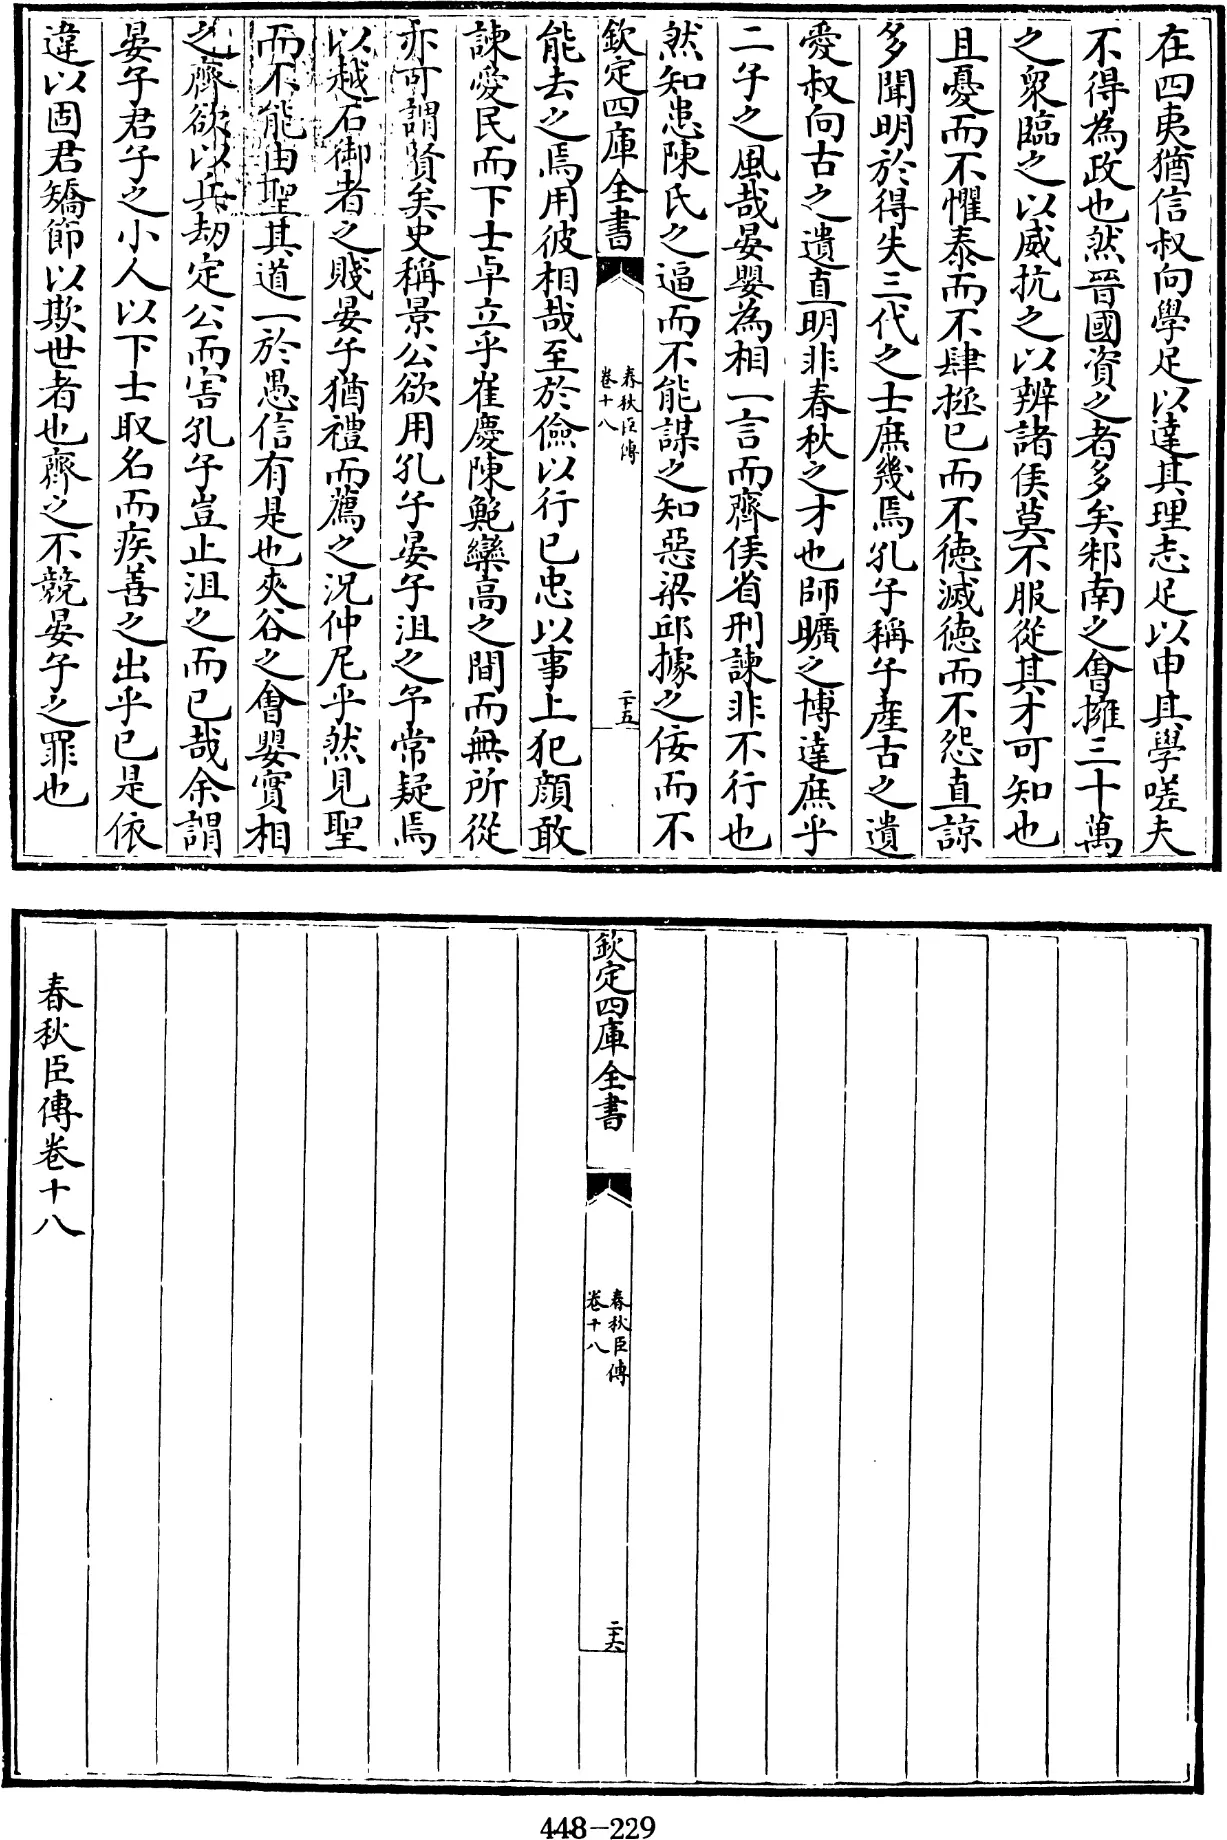 在四夷猶信叔向學足以達其理志足以申其學嗟夫
不得為政也然晉國資之者多矣邾南之㑹擁三十萬
之衆臨之以威抗之以辨諸侯莫不服從其才可知也
且憂而不懼泰而不肆拯已而不徳滅徳而不怨直諒
多聞明於得失三代之士庶幾焉孔子稱子產古之遺
愛叔向古之遺直明非春秋之才也師曠之博達庶乎
二子之風哉晏嬰為相一言而齊侯省刑諫非不行也
然知患陳氏之逼而不能謀之知惡梁邱據之佞而不
欽定四庫全書
春秋臣傳
卷十八
二十五
能去之焉用彼相哉至於儉以行已忠以事上犯顔敢
諫愛民而下士卓立乎崔慶陳鮑欒高之間而無所從
亦可謂賢矣史稱景公欲用孔子晏子沮之予常疑焉
以越石御者之賤晏子猶禮而薦之況仲尼乎然見聖
而不能由聖其道一於愚信有是也夾谷之㑹嬰實相
之齊欲以兵劫定公而害孔子豈止沮之而已哉余謂
晏子君子之小人以下士取名而疾善之出乎已是依
違以固君矯節以欺世者也齊之不競晏子之罪也
欽定四庫全書
春秋臣傳
卷十八
二十六
春秋臣傳卷十八
448-229